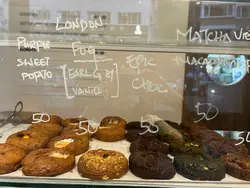 LONDON
FOG
[EARL GREY
VANILLA]
PURPLE
SWEET
POTATO
EPIC
CHOC
MATCHA
MACADAMIA
50
50
50
50
50